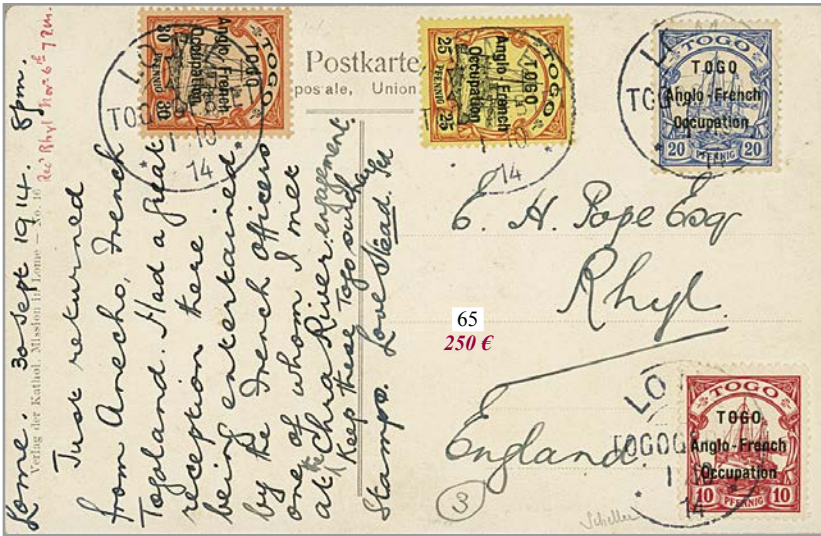 Postkarte
postale, Union
Lome. 30 Sept 1914. 8pm.
Rec' Rhyl Nov 6th 7 a.m.
Verlag der Kathol. Mission in Lome — No. 16
Just returned
from Anecho, French
Togoland. Had a great
reception there
being entertained
by the French Officers
one of whom I met
at the Chra River engagement.
Keep these Togo surcharged
Stamps. Love Stead.
E. H. Pope Esqr
Rhyl.
England.
TOGO
TOGO
Anglo-French
Occupation
30 PFENNIG 30
TOGO
TOGO
Anglo-French
Occupation
25 PFENNIG 25
TOGO
TOGO
Anglo-French
Occupation
20 PFENNIG 20
TOGO
TOGO
Anglo-French
Occupation
10 PFENNIG 10
LO
TOG
1 10
14
LO
T
10
14
LO
TOG
LO
TOGOG
1 10
14
65
250 €
3
Scheller